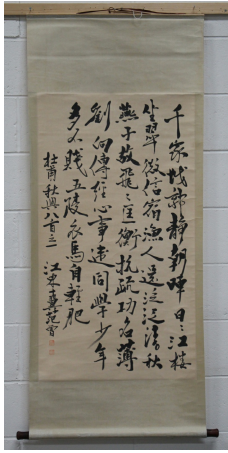 千家山郭靜朝暉日〻江樓
坐翠微信宿漁人還泛泛清秋
燕子故飛〻匡衡抗疏功名薄
劉向傳經心事違同學少年
多不賤五陵衣馬自輕肥
杜甫秋興八首三 江東十翼范曾